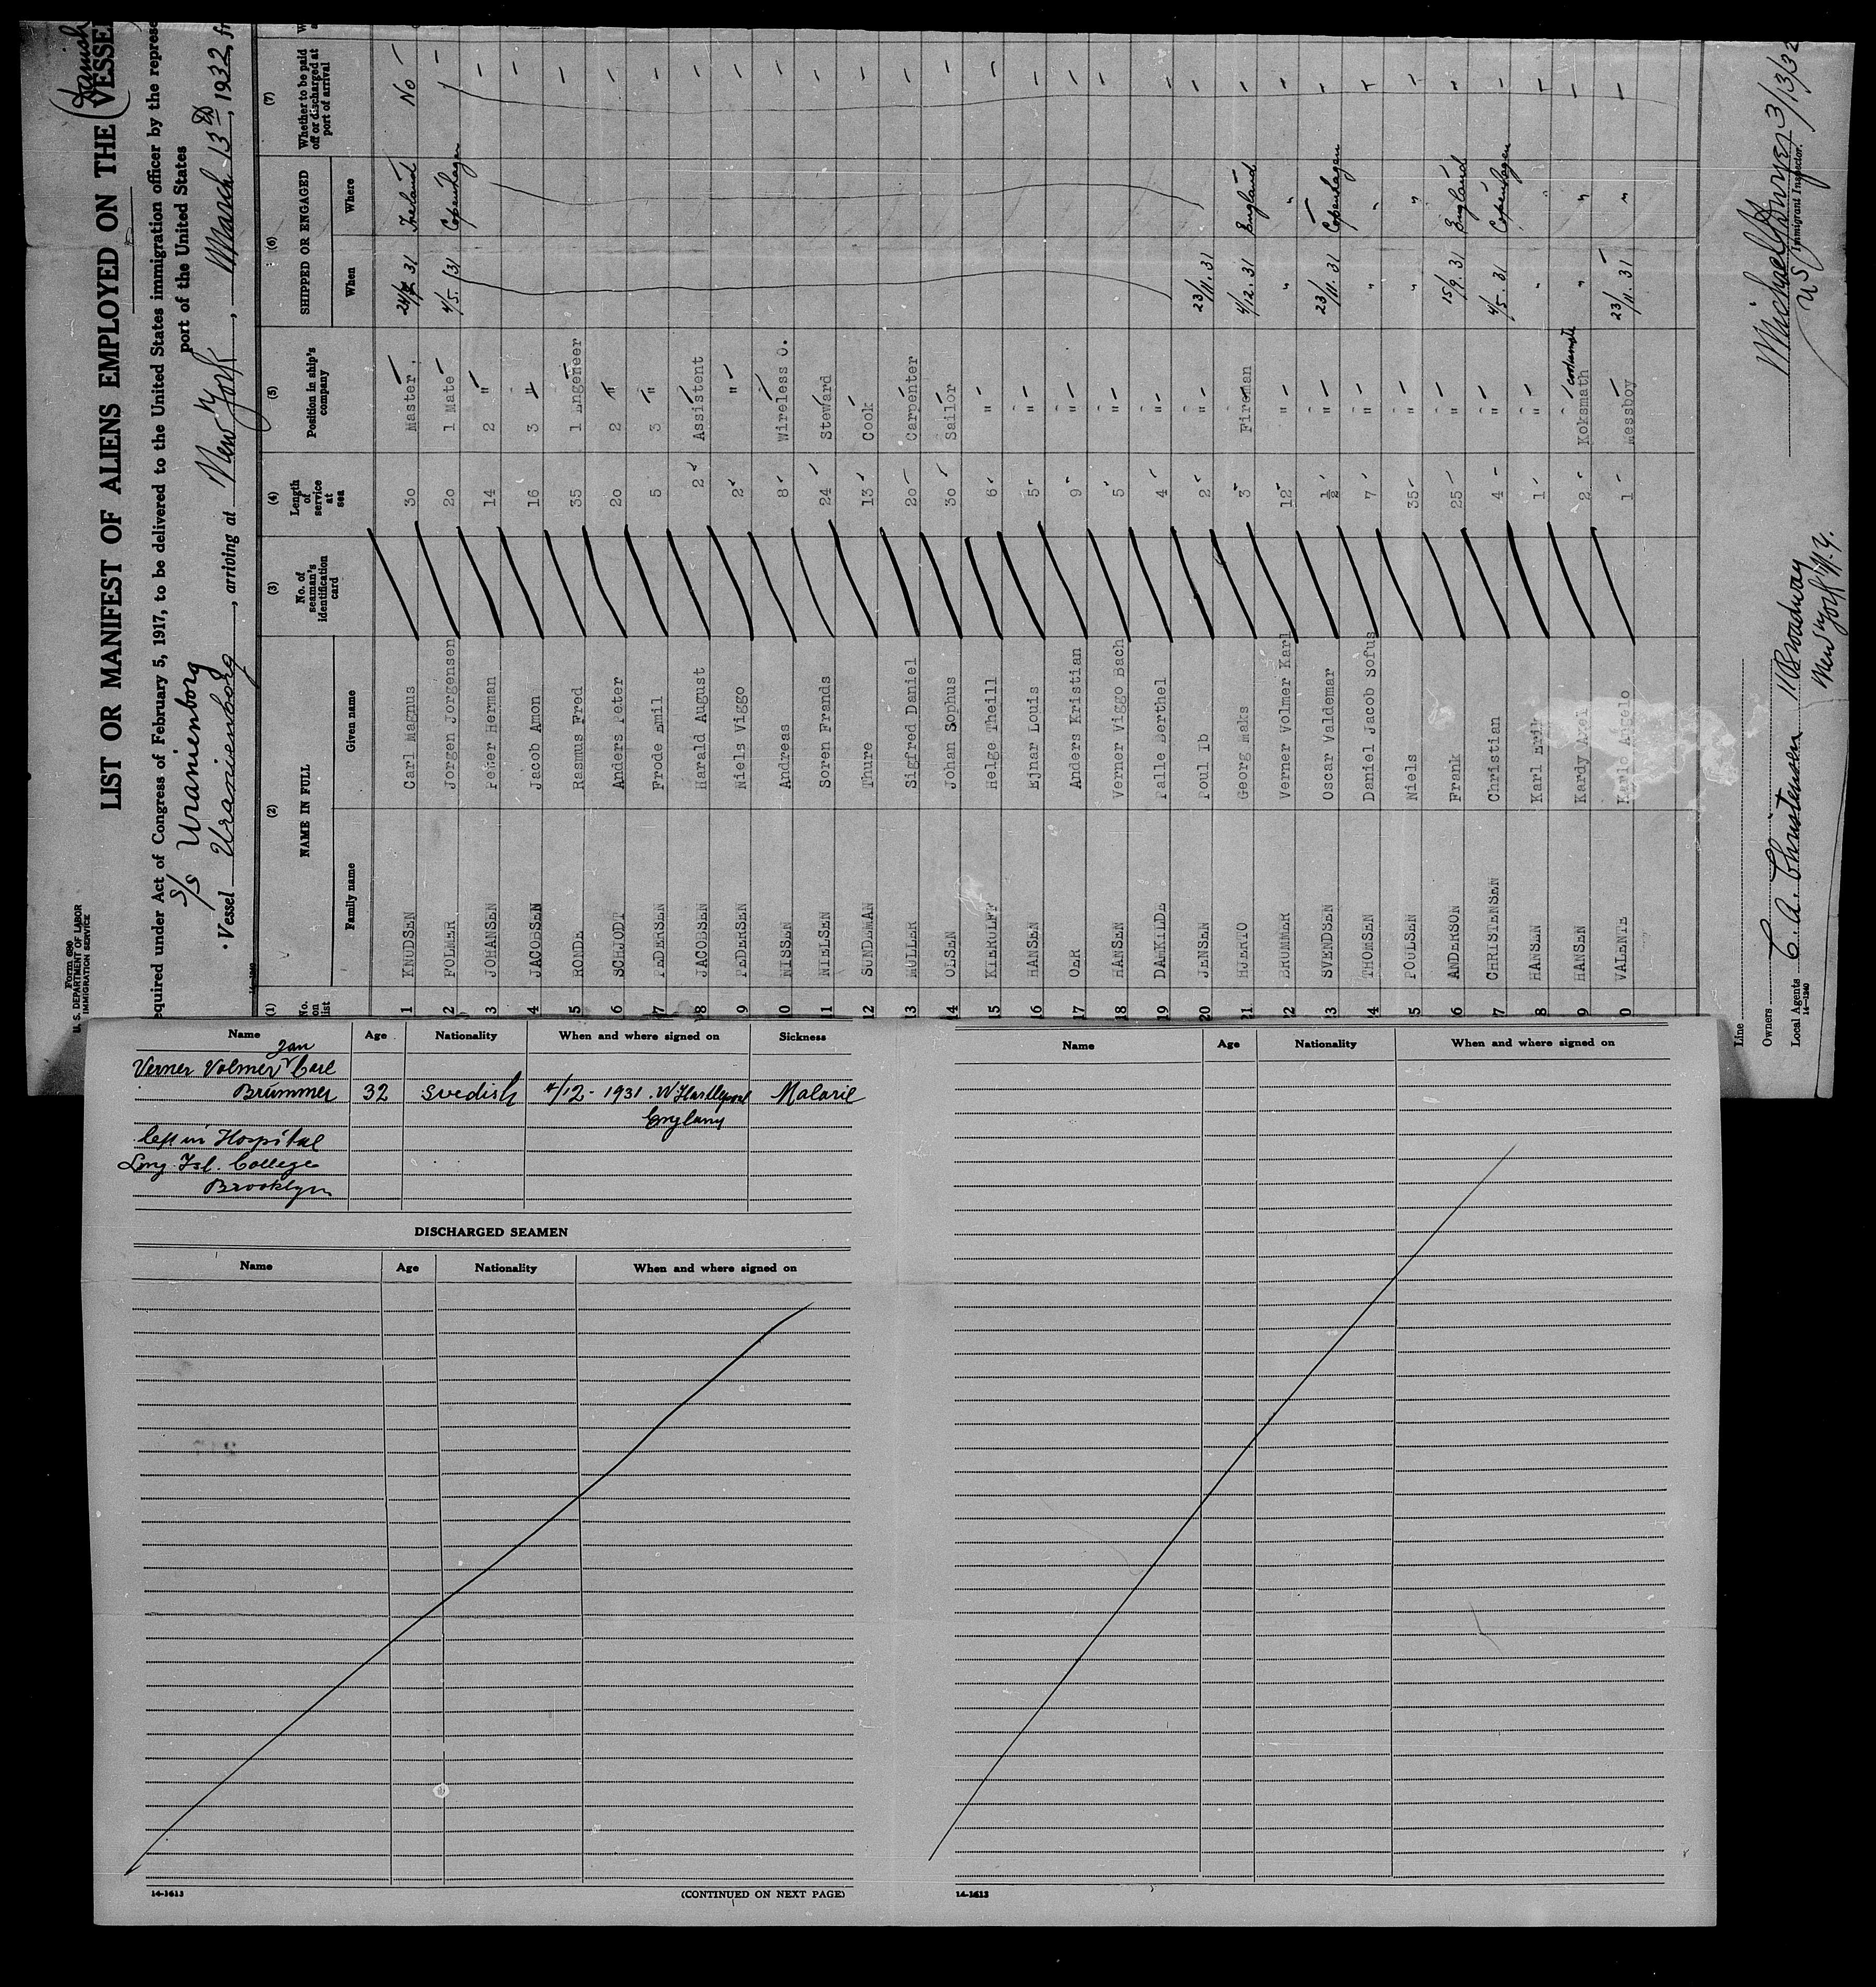 Form 680
U. S. DEPARTMENT OF LABOR
IMMIGRATION SERVICE
(Danish
LIST OR MANIFEST OF ALIENS EMPLOYED ON THE VESSE
equired under Act of Congress of February 5, 1917, to be delivered to the United States immigration officer by the represe
port of the United States
S/S Uranienborg
Vessel Uranienborg, arriving at New York, March 13th, 1932, fr
(1) (2) (3) (4) (5) (6) (7)
No. on list NAME IN FULL No. of seaman's identification card Length of service at sea Position in ship's company SHIPPED OR ENGAGED Whether to be paid off or discharged at port of arrival
Family name Given name When Where
1 KNUDSEN Carl Magnus 30 Master. 31 Ireland No -
2 FOLMER Jorgen Jorgensen 20 1 Mate 4/5. 31 Copenhagen -
3 JOHANSEN Peter Herman 14 2 " -
4 JACOBSEN Jacob Amon 16 3 " -
5 RONDE Rasmus Fred 35 1 Engeneer -
6 SCHJODT Anders Peter 20 2 " -
7 PEDERSEN Frode Emil 5 3 " -
8 JACOBSEN Harald August 2 Assistent -
9 PEDERSEN Niels Viggo 2 " -
10 NISSEN Andreas 8 Wireless O. -
11 NIELSEN Soren Frands 24 Steward -
12 SUNDEMAN Thure 13 Cook -
13 MULLER Sigfred Daniel 20 Carpenter -
14 OLSEN Johan Sophus 30 Sailor -
15 KIERULFF Helge Theill 6 " -
16 HANSEN Ejnar Louis 5 " -
17 OER Anders Kristian 9 " -
18 HANSEN Verner Viggo Bach 5 " -
19 DAMKILDE Palle Berthel 4 " -
20 JENSEN Poul Ib 2 " 23/11. 31 -
21 HUERTO Georg Maks 3 Fireman 4/12. 31 England -
22 BRUMMER Verner Volmer Karl 12 " " " -
3 SVENDSEN Oscar Valdemar 1/2 " 23/11. 31 Copenhagen -
4 THOMSEN Daniel Jacob Sofus 7 " " " -
5 POULSEN Niels 35 " " " -
6 ANDERSON Frank 25 " 15/9. 31 England -
7 CHRISTENSEN Christian 4 " 4/5. 31 Copenhagen -
8 HANSEN Karl Erik 1 " " " -
9 HANSEN Kardy Axel 2 Koksmath " " -
0 VALENTE Karlo Angelo 1 Messboy 23/11. 31 " -
Line
Owners
Local Agents C. A. Christensen 11 Broadway
New York N.Y.
14-1240
3/13/32
US Immigrant Inspector.
Name Age Nationality When and where signed on Sickness
Jan
Verner Volmer Carl
Brummer 32 Svedish 4/12 - 1931. W Hartlepool Malarie
England
left in Hospital
Long Isl. College
Brooklyn
DISCHARGED SEAMEN
Name Age Nationality When and where signed on
14-1613 (CONTINUED ON NEXT PAGE)
Name Age Nationality When and where signed on
14-1613